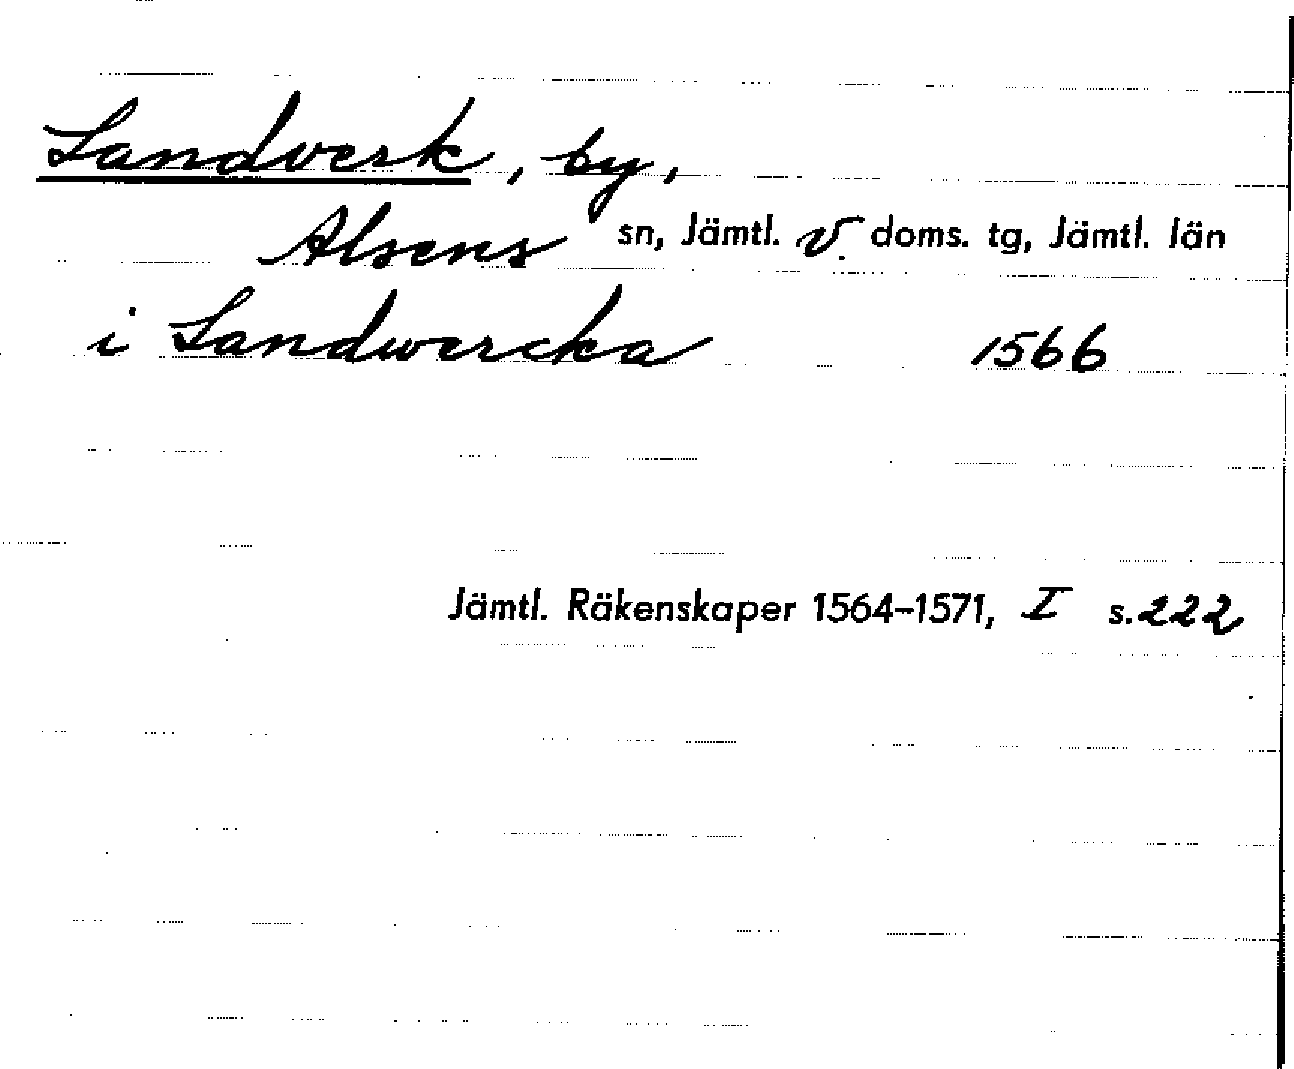 Landverk, by,
Alsens sn, Jämtl. v. doms. tg, Jämtl. län
i Landwercka 1566
Jämtl. Räkenskaper 1564-1571, I s. 222